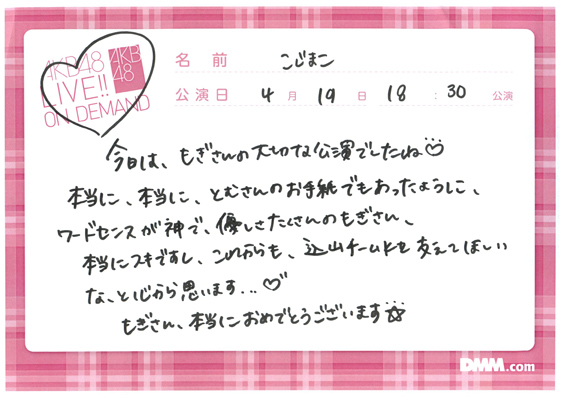 AKB48
LIVE!!
ON DEMAND
AKB
48
名前 こじまこ
公演日 4月19日 18:30 公演
今日は、もぎさんの大切な公演でしたね
本当に、本当に、とむさんのお手紙でもあったように、
ワードセンスが神で、優しさたくさんのもぎさん、
本当にスキですし、これからも、込山チームKを支えてほしい
な、と心から思います...
もぎさん、本当におめでとうございます
DMM.com